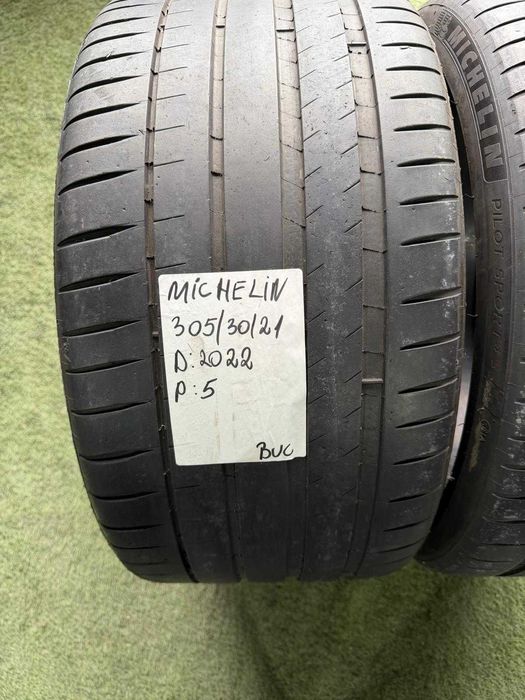 MICHELIN
305/30/21
D:2022
P:5
BUC
MICHELIN
PILOT SPORT